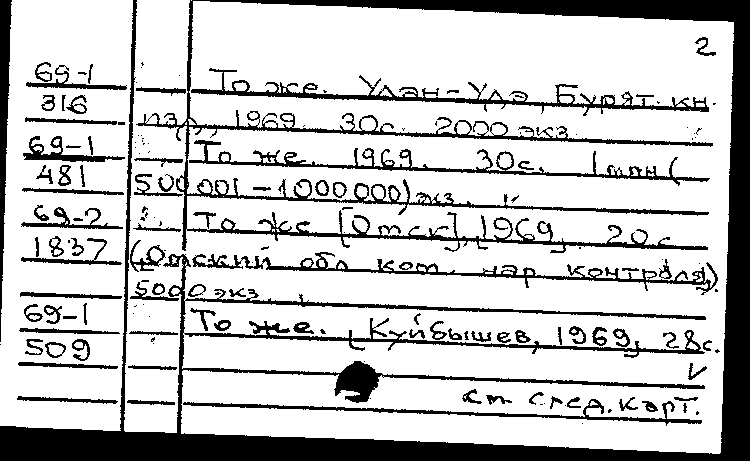 2
69-1 То же. Улан-Удэ, Бурят. кн.
316 изд., 1969. 30с. 2000 экз.
69-1 То же. 1969. 30с. 1 млн (
481 500 001 – 1000 000) экз.
69-2 То же [Омск], 1969, 20с
1837 (Омский обл. ком. нар. контроля).
5000 экз.
69-1 То же. [Куйбышев, 1969, 28с.
509
см след. карт.